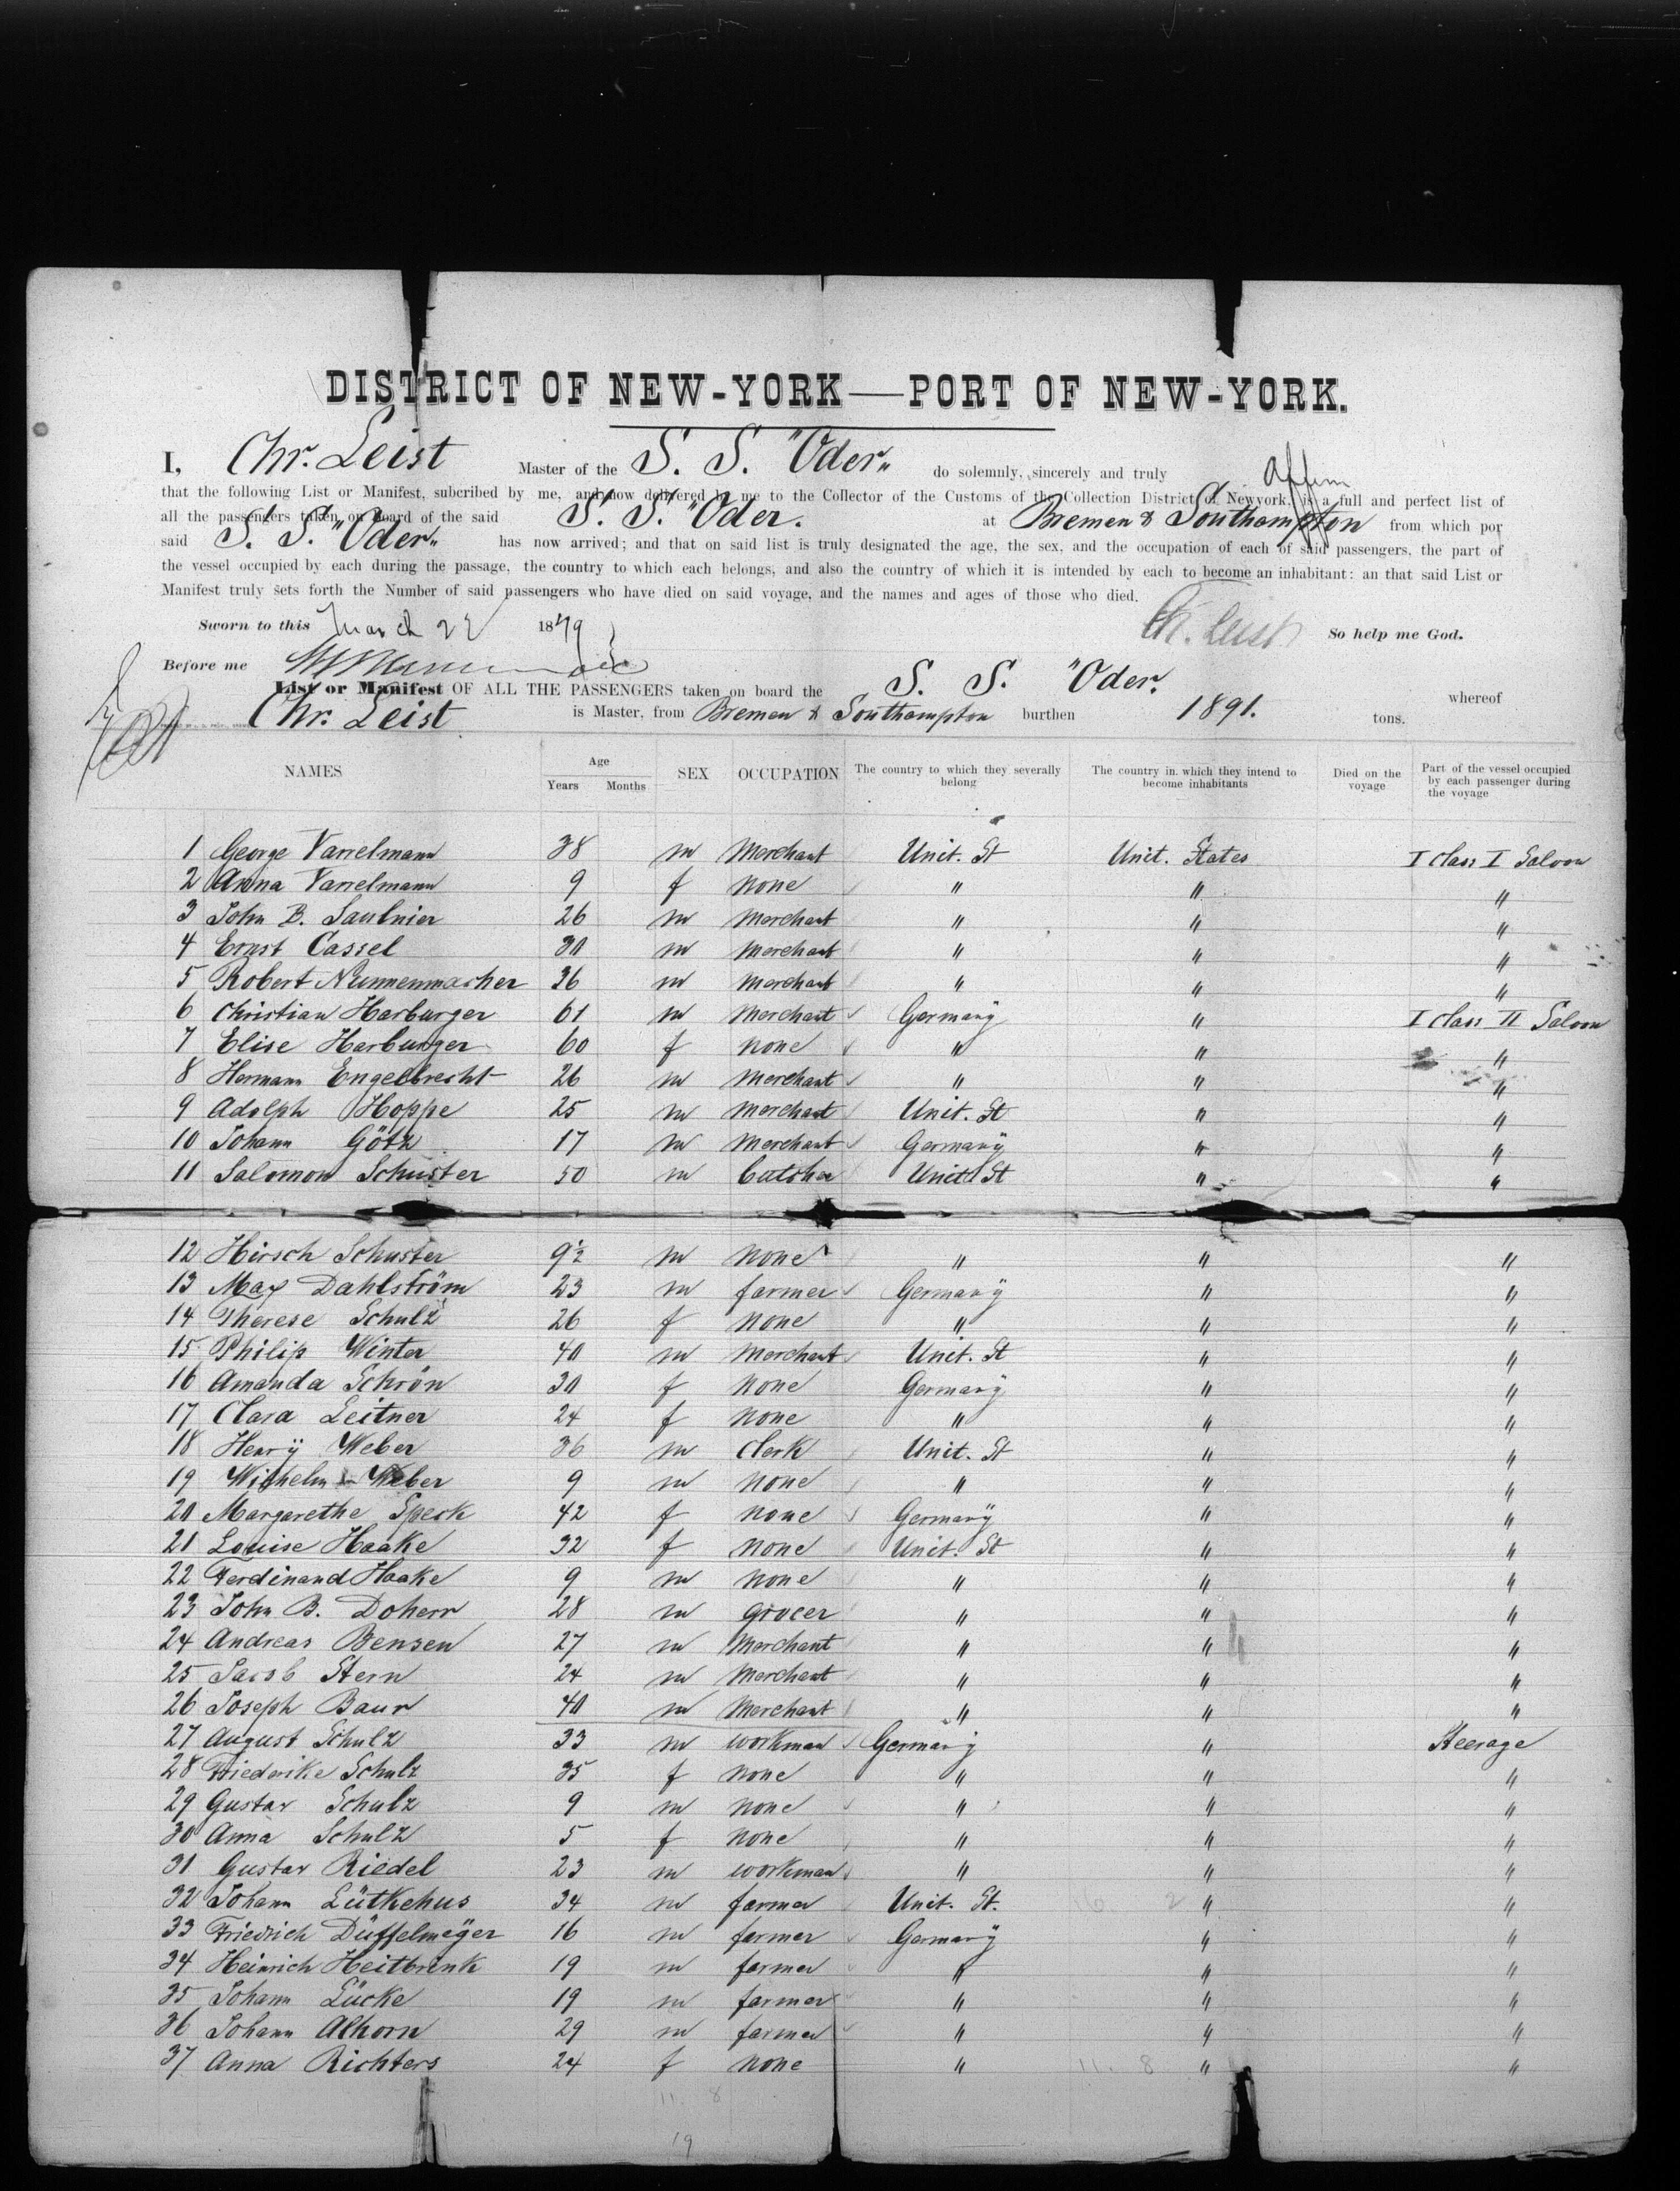 DISTRICT OF NEW-YORK—PORT OF NEW-YORK.
I, Chr. Leist Master of the S. S. "Oder" do solemnly, sincerely and truly affirm
that the following List or Manifest, subcribed by me, and now delivered by me to the Collector of the Customs of the Collection District of Newyork, is a full and perfect list of
all the passengers taken on board of the said S. S. "Oder. at Bremen & Southampton from which por
said S. S. "Oder" has now arrived; and that on said list is truly designated the age, the sex, and the occupation of each of said passengers, the part of
the vessel occupied by each during the passage, the country to which each belongs, and also the country of which it is intended by each to become an inhabitant: an that said List or
Manifest truly sets forth the Number of said passengers who have died on said voyage, and the names and ages of those who died.
Sworn to this March 22 1879 Ch. Leist So help me God.
Before me
List or Manifest OF ALL THE PASSENGERS taken on board the S. S. "Oder. whereof
Chr. Leist is Master, from Bremen & Southampton burthen 1891. tons.
NAMES Age Years Months SEX OCCUPATION The country to which they severally belong The country in which they intend to become inhabitants Died on the voyage Part of the vessel occupied by each passenger during the voyage
1 George Varrelmann 38 m Merchant Unit. St Unit. States I class I Saloon
2 Anna Varrelmann 9 f None " " "
3 John B. Saulnier 26 m Merchant " " "
4 Ernst Cassel 30 m Merchant " " "
5 Robert Nunnenmacher 36 m Merchant " " "
6 Christian Harburger 61 m Merchant Germany " I class II Saloon
7 Elise Harburger 60 f None " " "
8 Hermann Engelbrecht 26 m Merchant " " "
9 Adolph Hoppe 25 m Merchant Unit. St " "
10 Johann Götz 17 m Merchant Germany " "
11 Salomon Schuster 50 m butcher Unit St " "
12 Hirsch Schuster 9½ m None " " "
13 Max Dahlström 23 m farmer Germany " "
14 Therese Schulz 26 f None " " "
15 Philip Winter 40 m Merchant Unit. St " "
16 Amanda Schrön 30 f None Germany " "
17 Clara Leitner 24 f None " " "
18 Henry Weber 36 m Clerk Unit. St " "
19 Wilhelm Weber 9 m None " " "
20 Margarethe Speck 42 f None Germany " "
21 Louise Haake 32 f None Unit. St " "
22 Ferdinand Haake 9 m None " " "
23 John B. Doherr 28 m grocer " " "
24 Andreas Bensen 27 m Merchant " " "
25 Jacob Stern 24 m Merchant " " "
26 Joseph Baur 40 m Merchant " " "
27 August Schulz 33 m workman Germany " Steerage
28 Friederike Schulz 35 f None " " "
29 Gustav Schulz 9 m None " " "
30 Anna Schulz 5 f None " " "
31 Gustav Riedel 23 m workman " " "
32 Johann Lütkehus 34 m farmer Unit. St. " "
33 Friedrich Düffelmeyer 16 m farmer Germany " "
34 Heinrich Heitbrink 19 m farmer " " "
35 Johann Lücke 19 m farmer " " "
36 Johann Alhorn 29 m farmer " " "
37 Anna Richters 24 f None " " "
11. 8
11 8
19